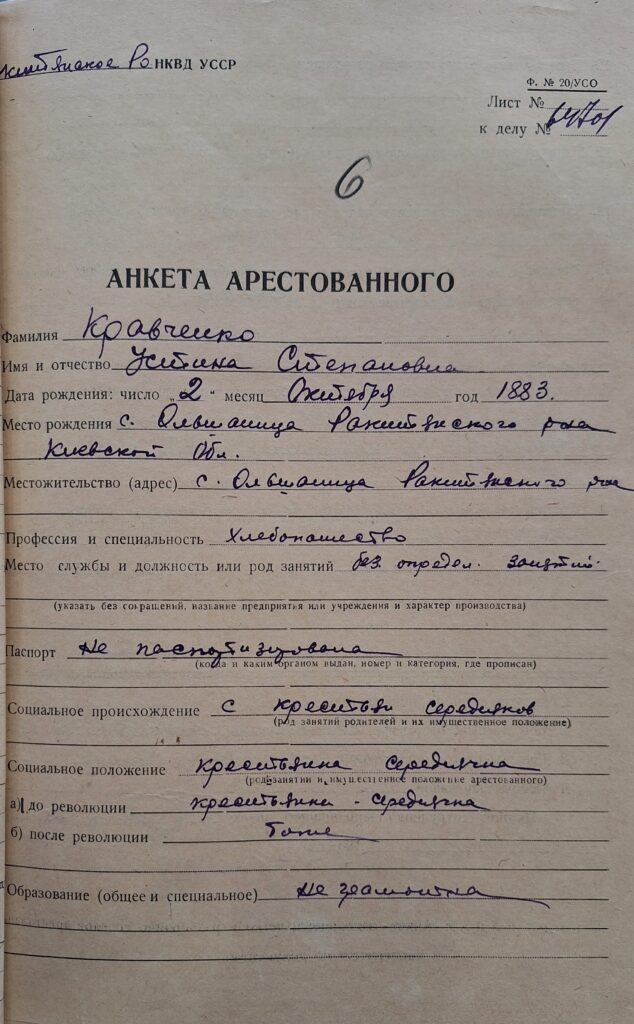 Ракитянское Ро НКВД УССР
Ф. № 20/УСО
Лист №
к делу № 64701
6
АНКЕТА АРЕСТОВАННОГО
Фамилия Кравченко
Имя и отчество Устина Степановна
Дата рождения: число „2“ месяц Октября год 1883.
Место рождения с. Ольшаница Ракитянского р-на
Киевской Обл.
Местожительство (адрес) с. Ольшаница Ракитянского р-на
Профессия и специальность Хлебопашество
Место службы и должность или род занятий без определ. занятий.
(указать без сокращений, название предприятия или учреждения и характер производства)
Паспорт Не паспортизирована
(когда и каким органом выдан, номер и категория, где прописан)
Социальное происхождение с крестьян середняков
(род занятий родителей и их имущественное положение)
Социальное положение крестьянка середнячка
(род занятий и имущественное положение арестованного)
а) до революции крестьянка - середнячка
б) после революции тоже
Образование (общее и специальное) не грамотна